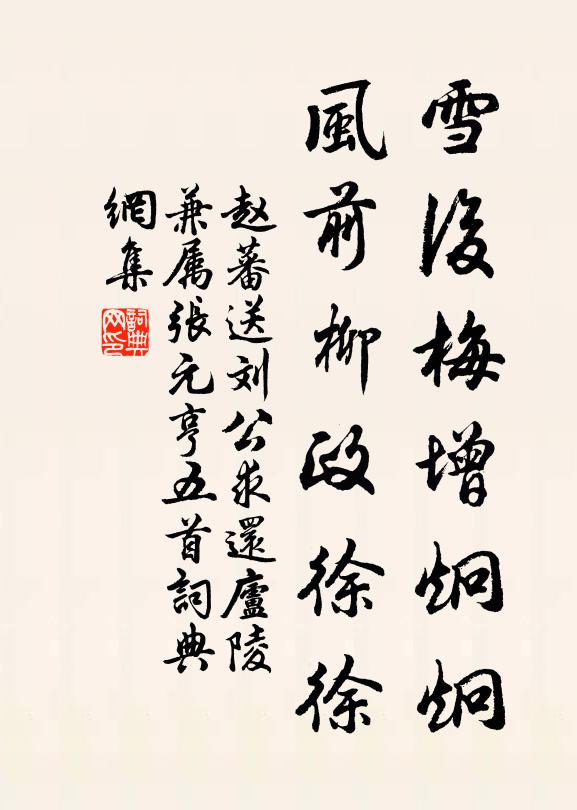 雪後梅增炯炯
風前柳政徐徐
赵蕃送刘公求還廬陵
兼属張元亨五首詞典
網集
詞典网印